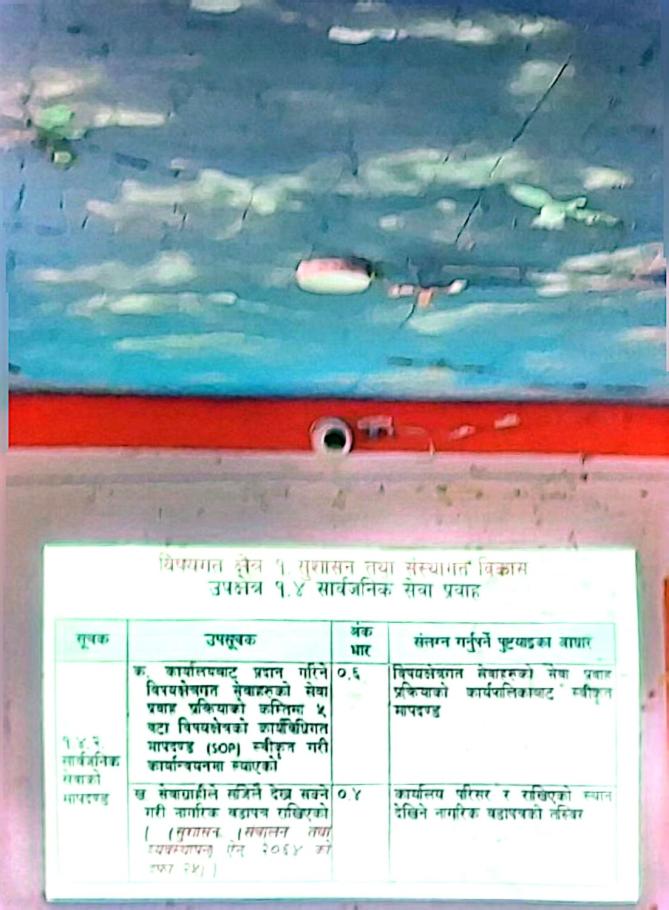 विषयगत क्षेत्र १. सुशासन तथा संस्थागत विकास
उपक्षेत्र १.४ सार्वजनिक सेवा प्रवाह
सूचक
उपसूचक
अंक
भार
संलग्न गर्नुपर्ने पुष्ट्याइका आधार
सार्वजनिक
सेवाको
मापदण्ड
क. कार्यालयबाट प्रदान गरिने
विषयक्षेत्रगत सेवाहरुको सेवा
प्रवाह प्रक्रियाको कम्तिमा ५
वटा विषयक्षेत्रको कार्यविधिगत
मापदण्ड (SOP) स्वीकृत गरी
कार्यान्वयनमा ल्याएको
०.६
विषयक्षेत्रगत सेवाहरुको सेवा प्रवाह
प्रक्रियाको कार्यपालिकाबाट स्वीकृत
मापदण्ड
ख. सेवाग्राहीले सजिलै देख्न सक्ने
गरी नागरिक वडापत्र राखिएको
( (सुशासन (संचालन तथा
व्यवस्थापन) ऐन, २०६४ को
दफा २५) )
०.४
कार्यालय परिसर र राखिएको स्थान
देखिने नागरिक वडापत्रको तस्विर